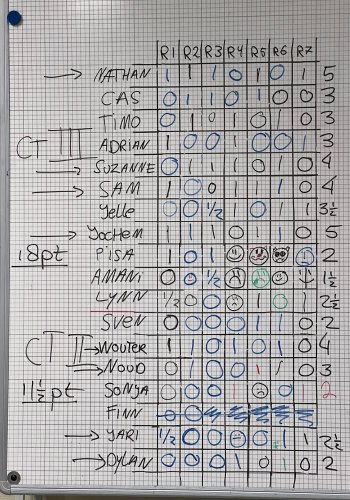 R1 R2 R3 R4 R5 R6 R7
→ NATHAN 1 1 1 0 1 0 1 5
CAS 0 1 1 0 1 0 0 3
TIMO 0 1 0 1 0 1 3
CT III ADRIAN 1 0 0 1 0 0 1 3
→ SUZANNE 0 1 1 1 0 1 0 4
→ SAM 1 0 0 1 1 1 0 4
Yelle 0 0 1/2 1 0 1 1 3½
→ JOCHEM 1 1 1 0 1 1 0 5
18pt PISA 1 0 1 2
AMANI 0 0 1/2 1½
LYNN 1/2 0 0 1 0 1 2½
SVEN 0 0 0 0 1 1 0 2
CT II → WOUTER 1 1 0 1 0 1 0 4
→ NOUD 0 1 0 0 1 1 0 3
11½pt SONJA 0 0 0 1 0 1 2
FINN 0 0
→ YARI 1/2 0 0 0 0 1 1 2½
→ DYLAN 0 0 0 1 0 1 0 2